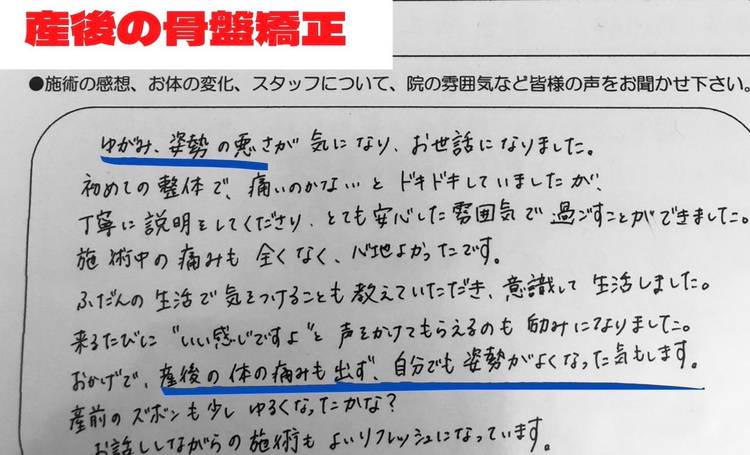 産後の骨盤矯正
●施術の感想、お体の変化、スタッフについて、院の雰囲気など皆様の声をお聞かせ下さい。
ゆがみ、姿勢の悪さが気になり、お世話になりました。
初めての整体で、痛いのかな…とドキドキしていましたが、
丁寧に説明をしてくださり、とても安心した雰囲気で過ごすことができました。
施術中の痛みも全くなく、心地よかったです。
ふだんの生活で気をつけることも教えていただき、意識して生活しました。
来るたびに"いい感じですよ"と声をかけてもらえるのも励みになりました。
おかげで、産後の体の痛みも出ず、自分でも姿勢がよくなった気もします。
産前のズボンも少しゆるくなったかな?
お話ししながらの施術もよいリフレッシュになっています。